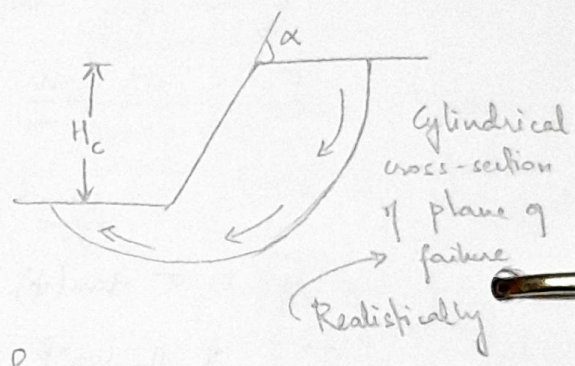 α
H_c
Cylindrical
cross-section
of plane of
failure
Realistically